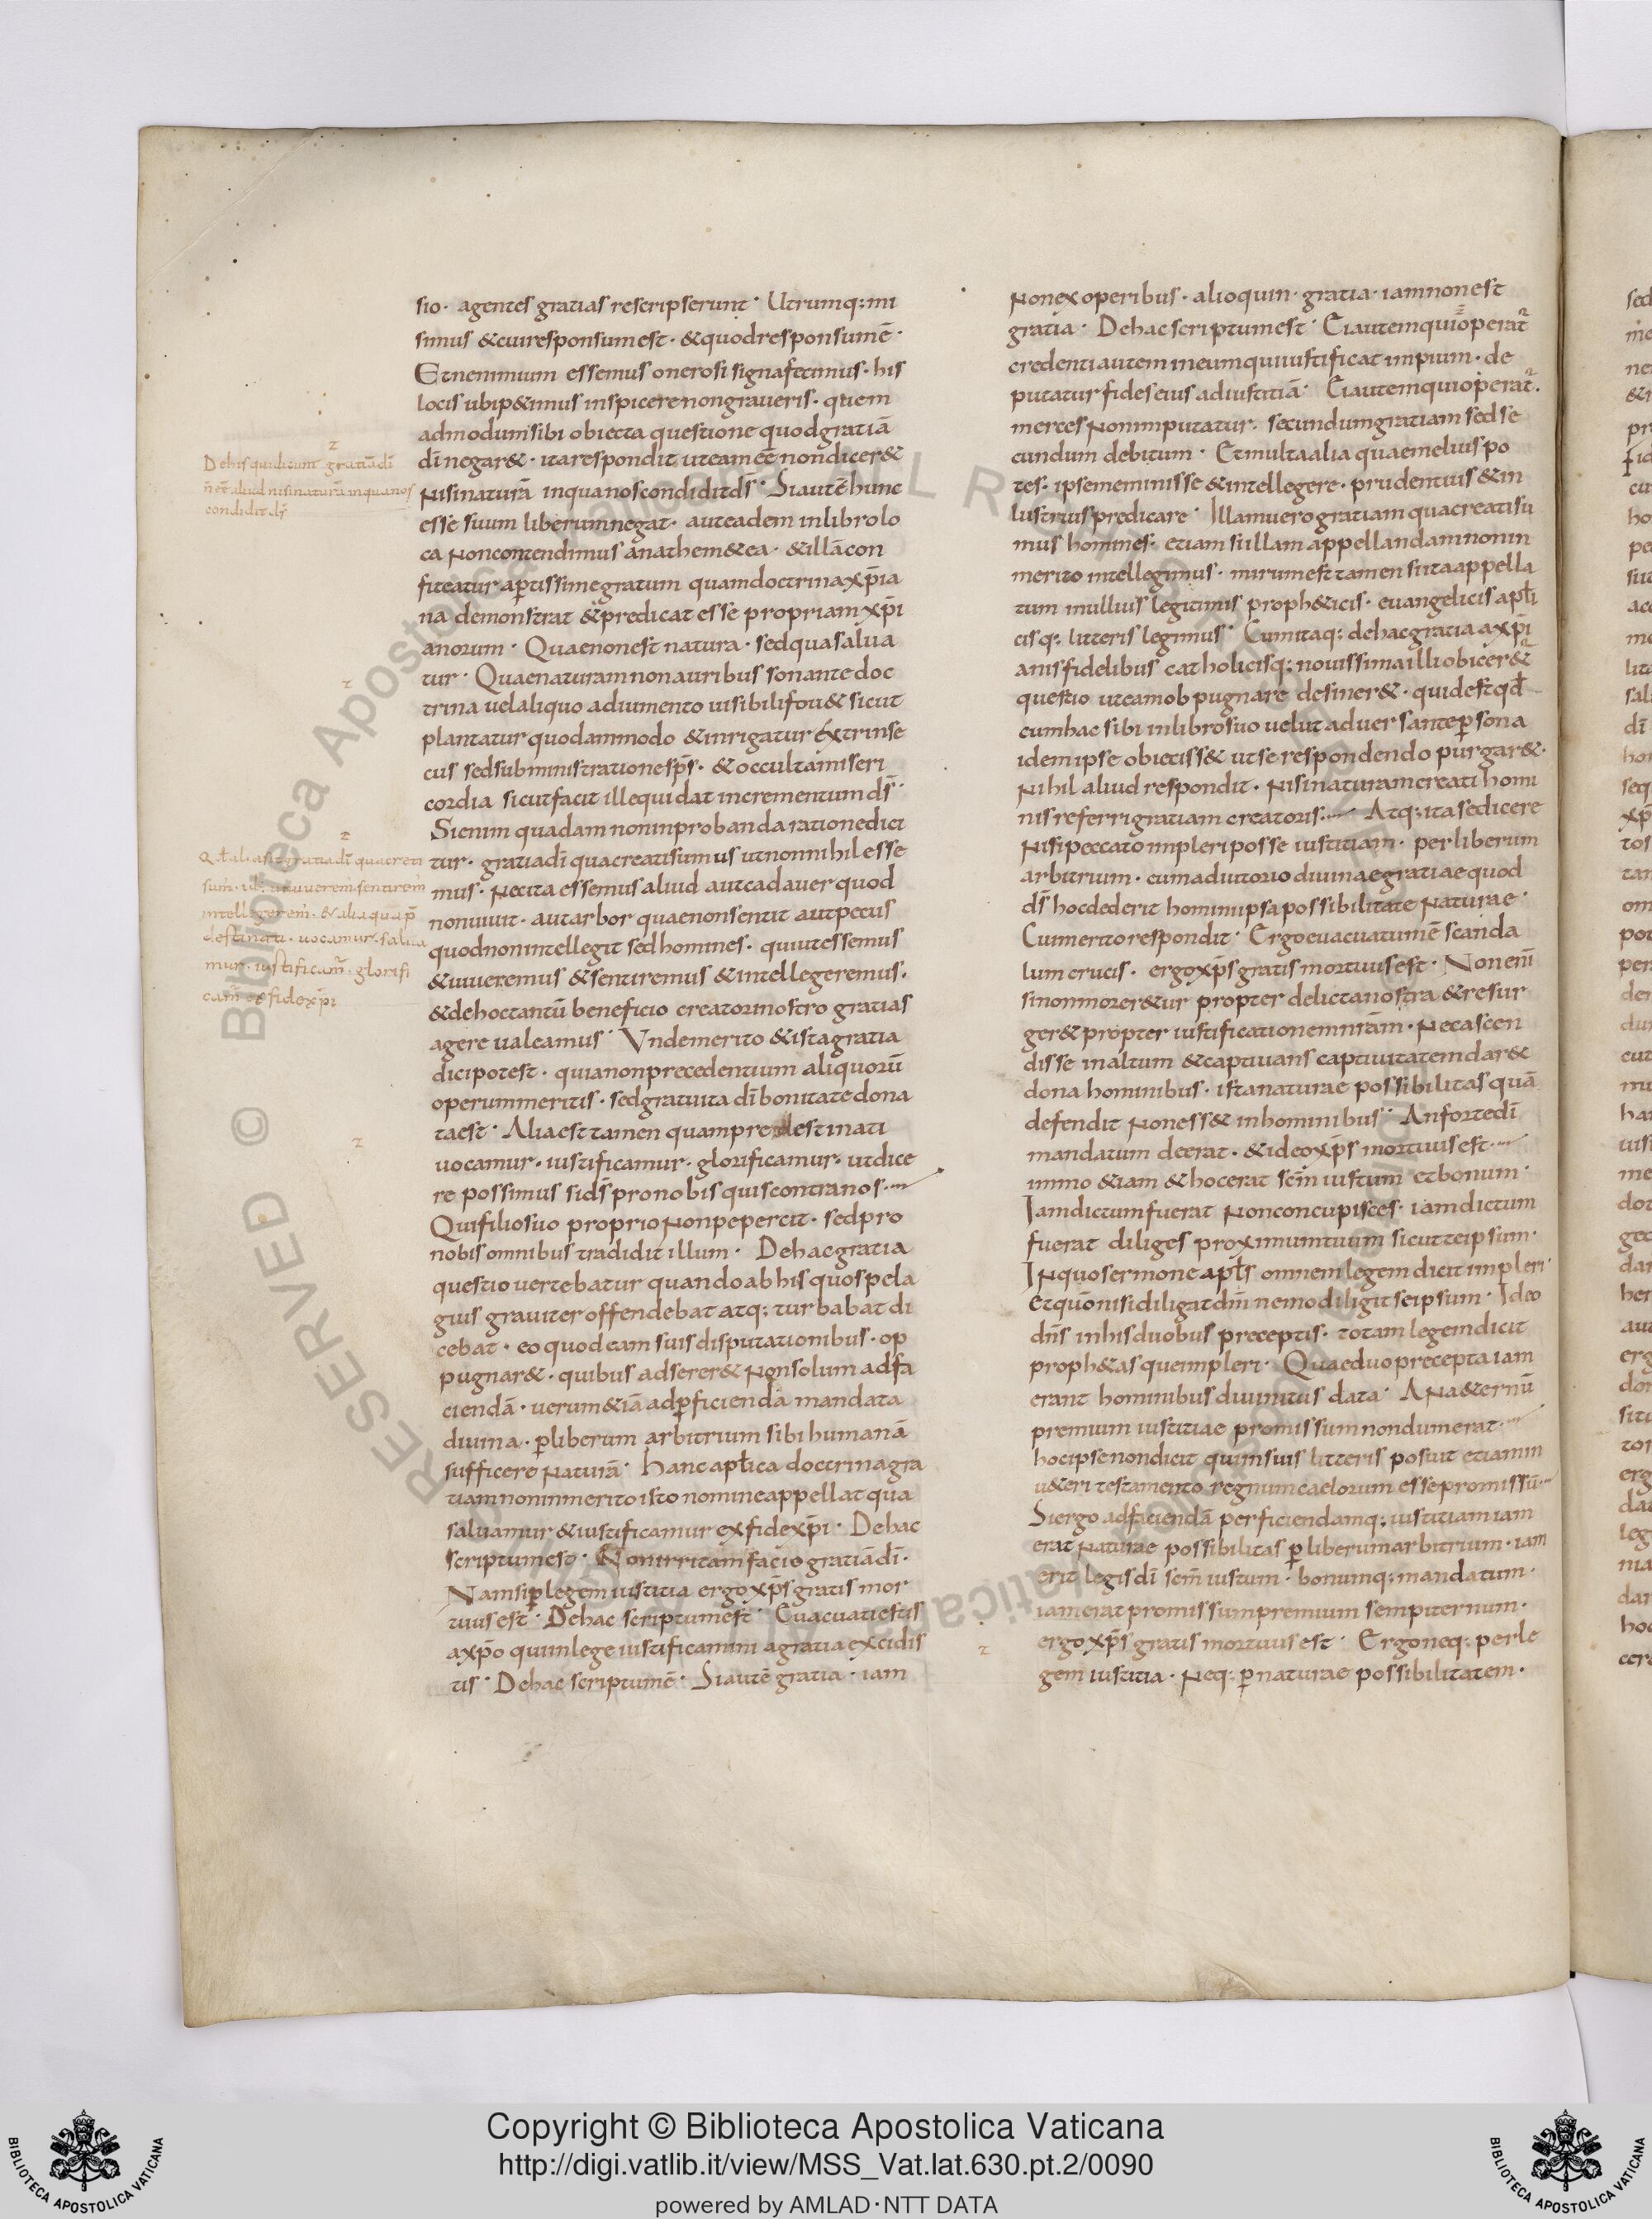 sio · agentes gratias rescripserunt · Utrumq: mi
simus & cui responsum est · & quod responsum ē ·
Et ne nimium essemus onerosi signa fecimus · his
locis ubi p&imus inspicere non graveris · quem
admodum sibi obiecta questione quod gratiā
dī negar& · ita respondit ut eam eē non dicer&
Nisi naturā in qua nos condidit ds̄ · Si autē hunc
esse suum librum negat · aut eadem in libro lo
ca non contendimus anathem& ea · & illā con
fiteatur aptissime gratum quam doctrina xp̄ia
na demonstrat & predicat esse propriam xp̄i
anorum · Quae non est natura · sed qua salua
tur · Quae naturam non auribus sonante doc
trina vel aliquo adiumento uisibili fou& sicut
plantatur quodammodo & inrigatur extrinse
cus sed subministratione sp̄s · & occulta miseri
cordia sicut facit ille qui dat incrementum ds̄ ·
Si enim quadam non inprobanda ratione dici
tur · gratia dī qua creati sumus ut non nihil esse
mus · Nec ita essemus aliud aut cadauer quod
non uiuit · aut arbor quae non sentit aut pecus
quod non intellegit sed homines · qui ut essemus
& uiueremus & sentiremus & intellegeremus ·
& de hoc tantū beneficio creatori nostro gratias
agere ualeamus · Unde merito & ista gratia
dici potest · quia non precedentium aliquorū
operum meritis · sed gratuita dī bonitate dona
ta est · Alia est tamen quam predestinati
uocamur · iustificamur · glorificamur · ut dice
re possimus si ds̄ pro nobis quis contra nos ·
Qui filio suo proprio non pepercit · sed pro
nobis omnibus tradidit illum · De hac gratia
questio vertebatur quando ab his quos pela
gius graviter offendebat atq: turbabat di
cebat · eo quod eam suis disputationibus · op
pugnar& · quibus adserer& non solum ad fa
ciendā · uerum &iā ad pficiendā mandata
diuina · p liberum arbitrium sibi humanā
sufficere naturā · hanc aptica doctrina gra
tiam non inmerito isto nomine appellat qua
saluamur & iustificamur ex fide xp̄i · De hac
scriptum est · Non irritam facio gratiā dī ·
Nam si p legem iustitia ergo xp̄s gratis mor
tuus est · De hac scriptum est · Euacuati estis
a xp̄o qui in lege iustificamini a gratia excidis
tis · De hac scriptum ē · Si autē gratia · iam
De his qui dicunt gratiā dī
n̄ eē aliud nisi naturā in qua nos
condidit ds̄
Non ex operibus · alioquin · gratia · iam non est
gratia · De hac scriptum est · Ei autem qui operat
credenti autem in eum qui iustificat impium · de
putatur fides eius ad iustitiā · Ei autem qui operat ·
merces non imputatur · secundum gratiam sed se
cundum debitum · Et multa alia quae melius po
tes · ipse meminisse & intellegere · prudentius & in
lustrius predicare · Illam uero gratiam qua creati su
mus homines · etiam si illam appellandam non in
merito intellegimus · mirum est tamen si ita appella
tum in ullius legitimis proph&icis · euangelicis aptli
cisq: litteris legimus · Cum itaq: de hac gratia a xp̄i
anis fidelibus catholicisq: nouissima illi obicer&
questio ut eam obpugnare desiner& · quid est qd
cum hac sibi in libro suo uelut aduersante psona
idem ipse obieciss& ut se respondendo purgar& ·
Nihil aliud respondit · Nisi naturam creati homi
nis referri gratiam creatoris · Atq: ita se dicere
Nisi peccato impleri posse iustitiam · per liberum
arbitrium · cum adiutorio diuinae gratiae quod
ds̄ hoc dederit homini ipsa possibilitate naturae ·
Cui merito respondit · Ergo euacuatum ē scanda
lum crucis · ergo xp̄s gratis mortuus est · Non enī
si non morer&ur propter delicta nostra & resur
ger& propter iustificationem nr̄am · Nec ascen
disse in altum & captiuans captiuitatem dar&
dona hominibus · ista naturae possibilitas quā
defendit non ess& in hominibus · An forte dī
mandatum deerat · & ideo xp̄s mortuus est ·
immo &iam & hoc erat scm̄ iustum et bonum ·
Iam dictum fuerat non concupisces · iam dictum
fuerat diliges proximum tuum sicut te ipsum ·
In quo sermone aptls omnem legem dicit impleri
Et quō nisi diligat dm̄ nemo diligit se ipsum · Ideo
dn̄s in his duobus preceptis · totam legem dicit
proph&asque impleri · Quae duo precepta iam
erant hominibus diuinitus data · An a&ernū
premium iustitiae promissum nondum erat ·
hoc ipse non dicit qui in suis litteris posuit etiam in
u&eri testamento regnum caelorum esse promissū ·
Si ergo ad faciendā perficiendamq: iustitiam iam
erat naturae possibilitas p liberum arbitrium · iam
erit legis dī scm̄ iustum · bonumq: mandatum ·
iam erat promissum premium sempiternum ·
ergo xp̄s gratis mortuus est · Ergo neq: per le
gem iustitia · Neq: p naturae possibilitatem ·
Copyright © Biblioteca Apostolica Vaticana
http://digi.vatlib.it/view/MSS_Vat.lat.630.pt.2/0090
powered by AMLAD·NTT DATA
BIBLIOTECA APOSTOLICA VATICANA
BIBLIOTECA APOSTOLICA VATICANA